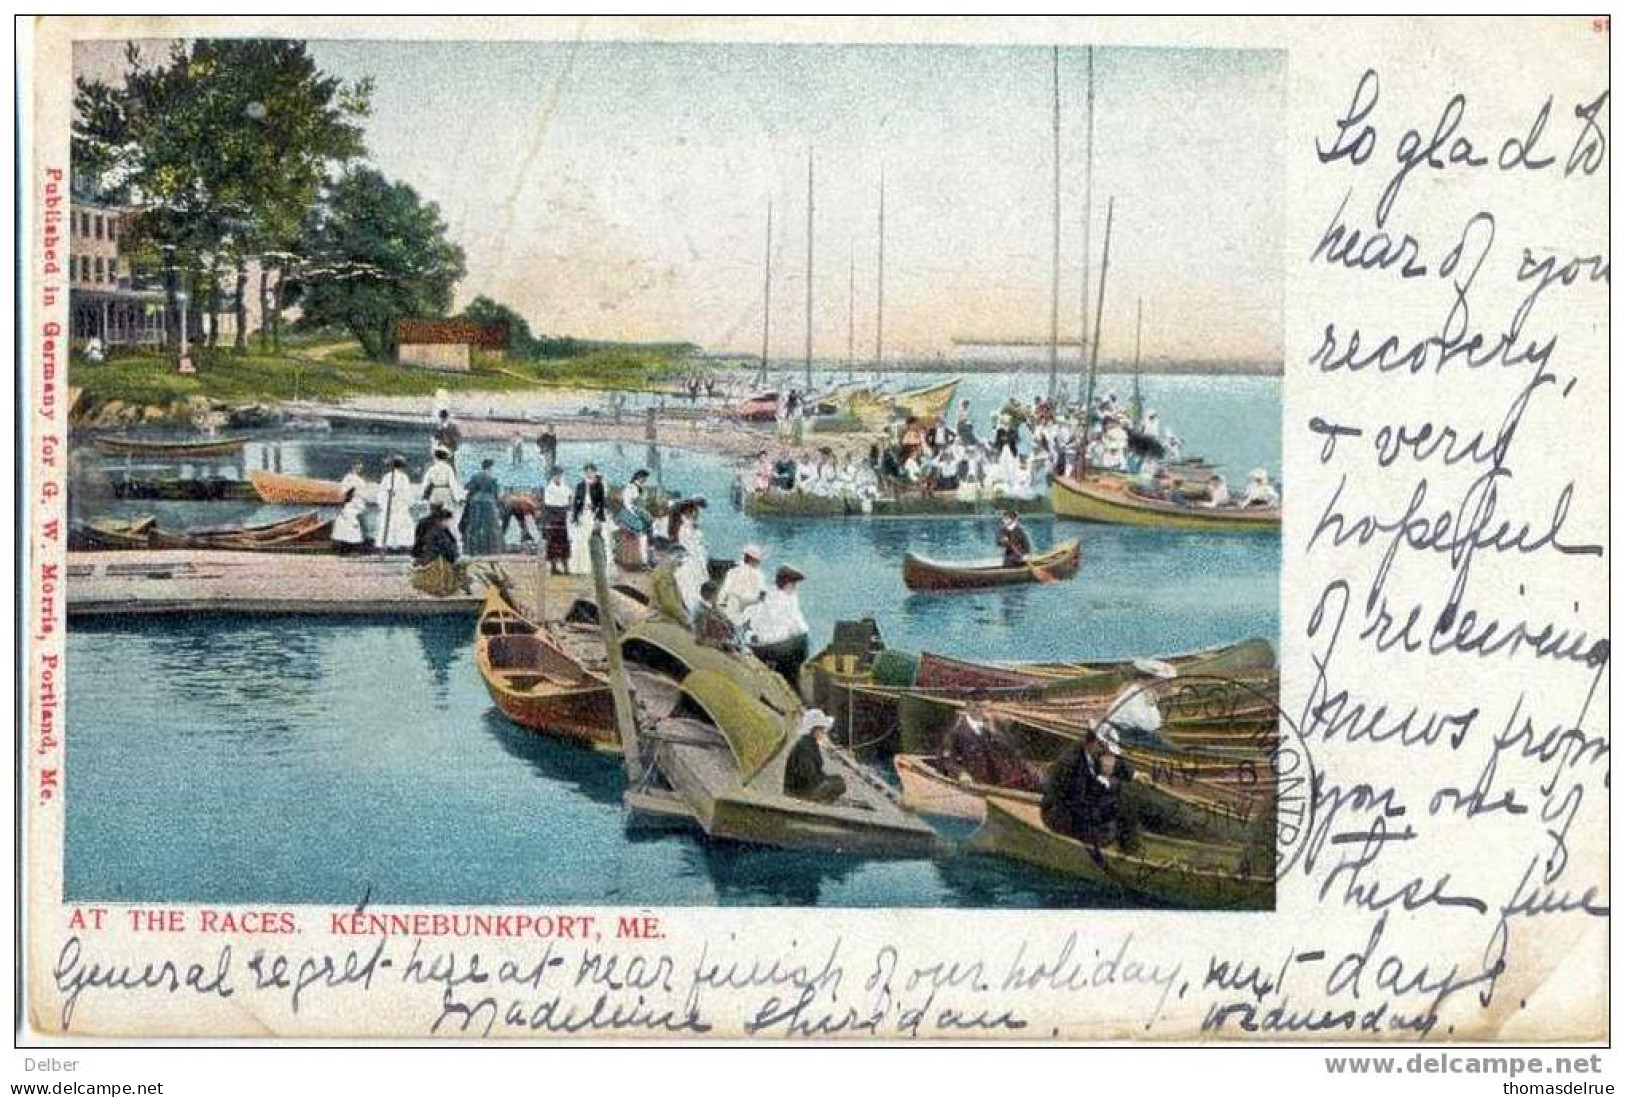 So glad to
hear of your
recovery,
& very
hopeful
of receiving
news from
you, one of
these fine
days.
Published in Germany for G. W. Morris, Portland, Me.
MONTR
AM
AUG
AT THE RACES. KENNEBUNKPORT, ME.
General regret here at near finish of our holiday, next
Wednesday.
Madeleine Sheridan.
Delber
www.delcampe.net
thomasdelrue